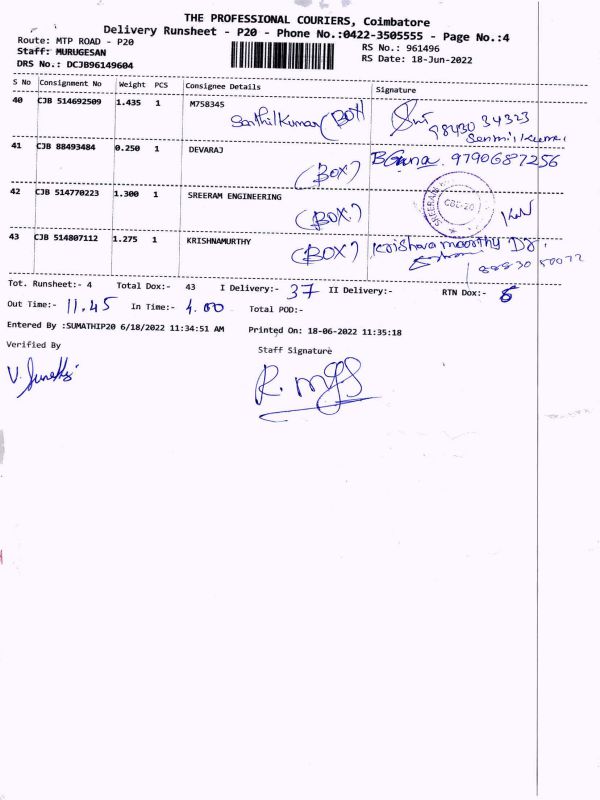 THE PROFESSIONAL COURIERS, Coimbatore
Delivery Runsheet - P20 - Phone No.:0422-3505555 - Page No.:4
Route: MTP ROAD - P20
RS No.: 961496
Staff: MURUGESAN
RS Date: 18-Jun-2022
DRS No.: DCJB96149604
S No Consignment No Weight PCS Consignee Details Signature
40 CJB 514692509 1.435 1 M758345
Senthilkumar (BOX) 98430 34323
Senthil Kumar
41 CJB 88493484 0.250 1 DEVARAJ
(BOX) BGuna. 9790687256
42 CJB 514770223 1.300 1 SREERAM ENGINEERING
(BOX) SREERAM CBE-20
43 CJB 514807112 1.275 1 KRISHNAMURTHY
(BOX) Krishnamoorthy
Tot. Runsheet:- 4 Total Dox:- 43 I Delivery:- 37 II Delivery:- RTN Dox:- 6
Out Time:- 11.45 In Time:- 4.00 Total POD:-
Entered By :SUMATHIP20 6/18/2022 11:34:51 AM Printed On: 18-06-2022 11:35:18
Verified By Staff Signature